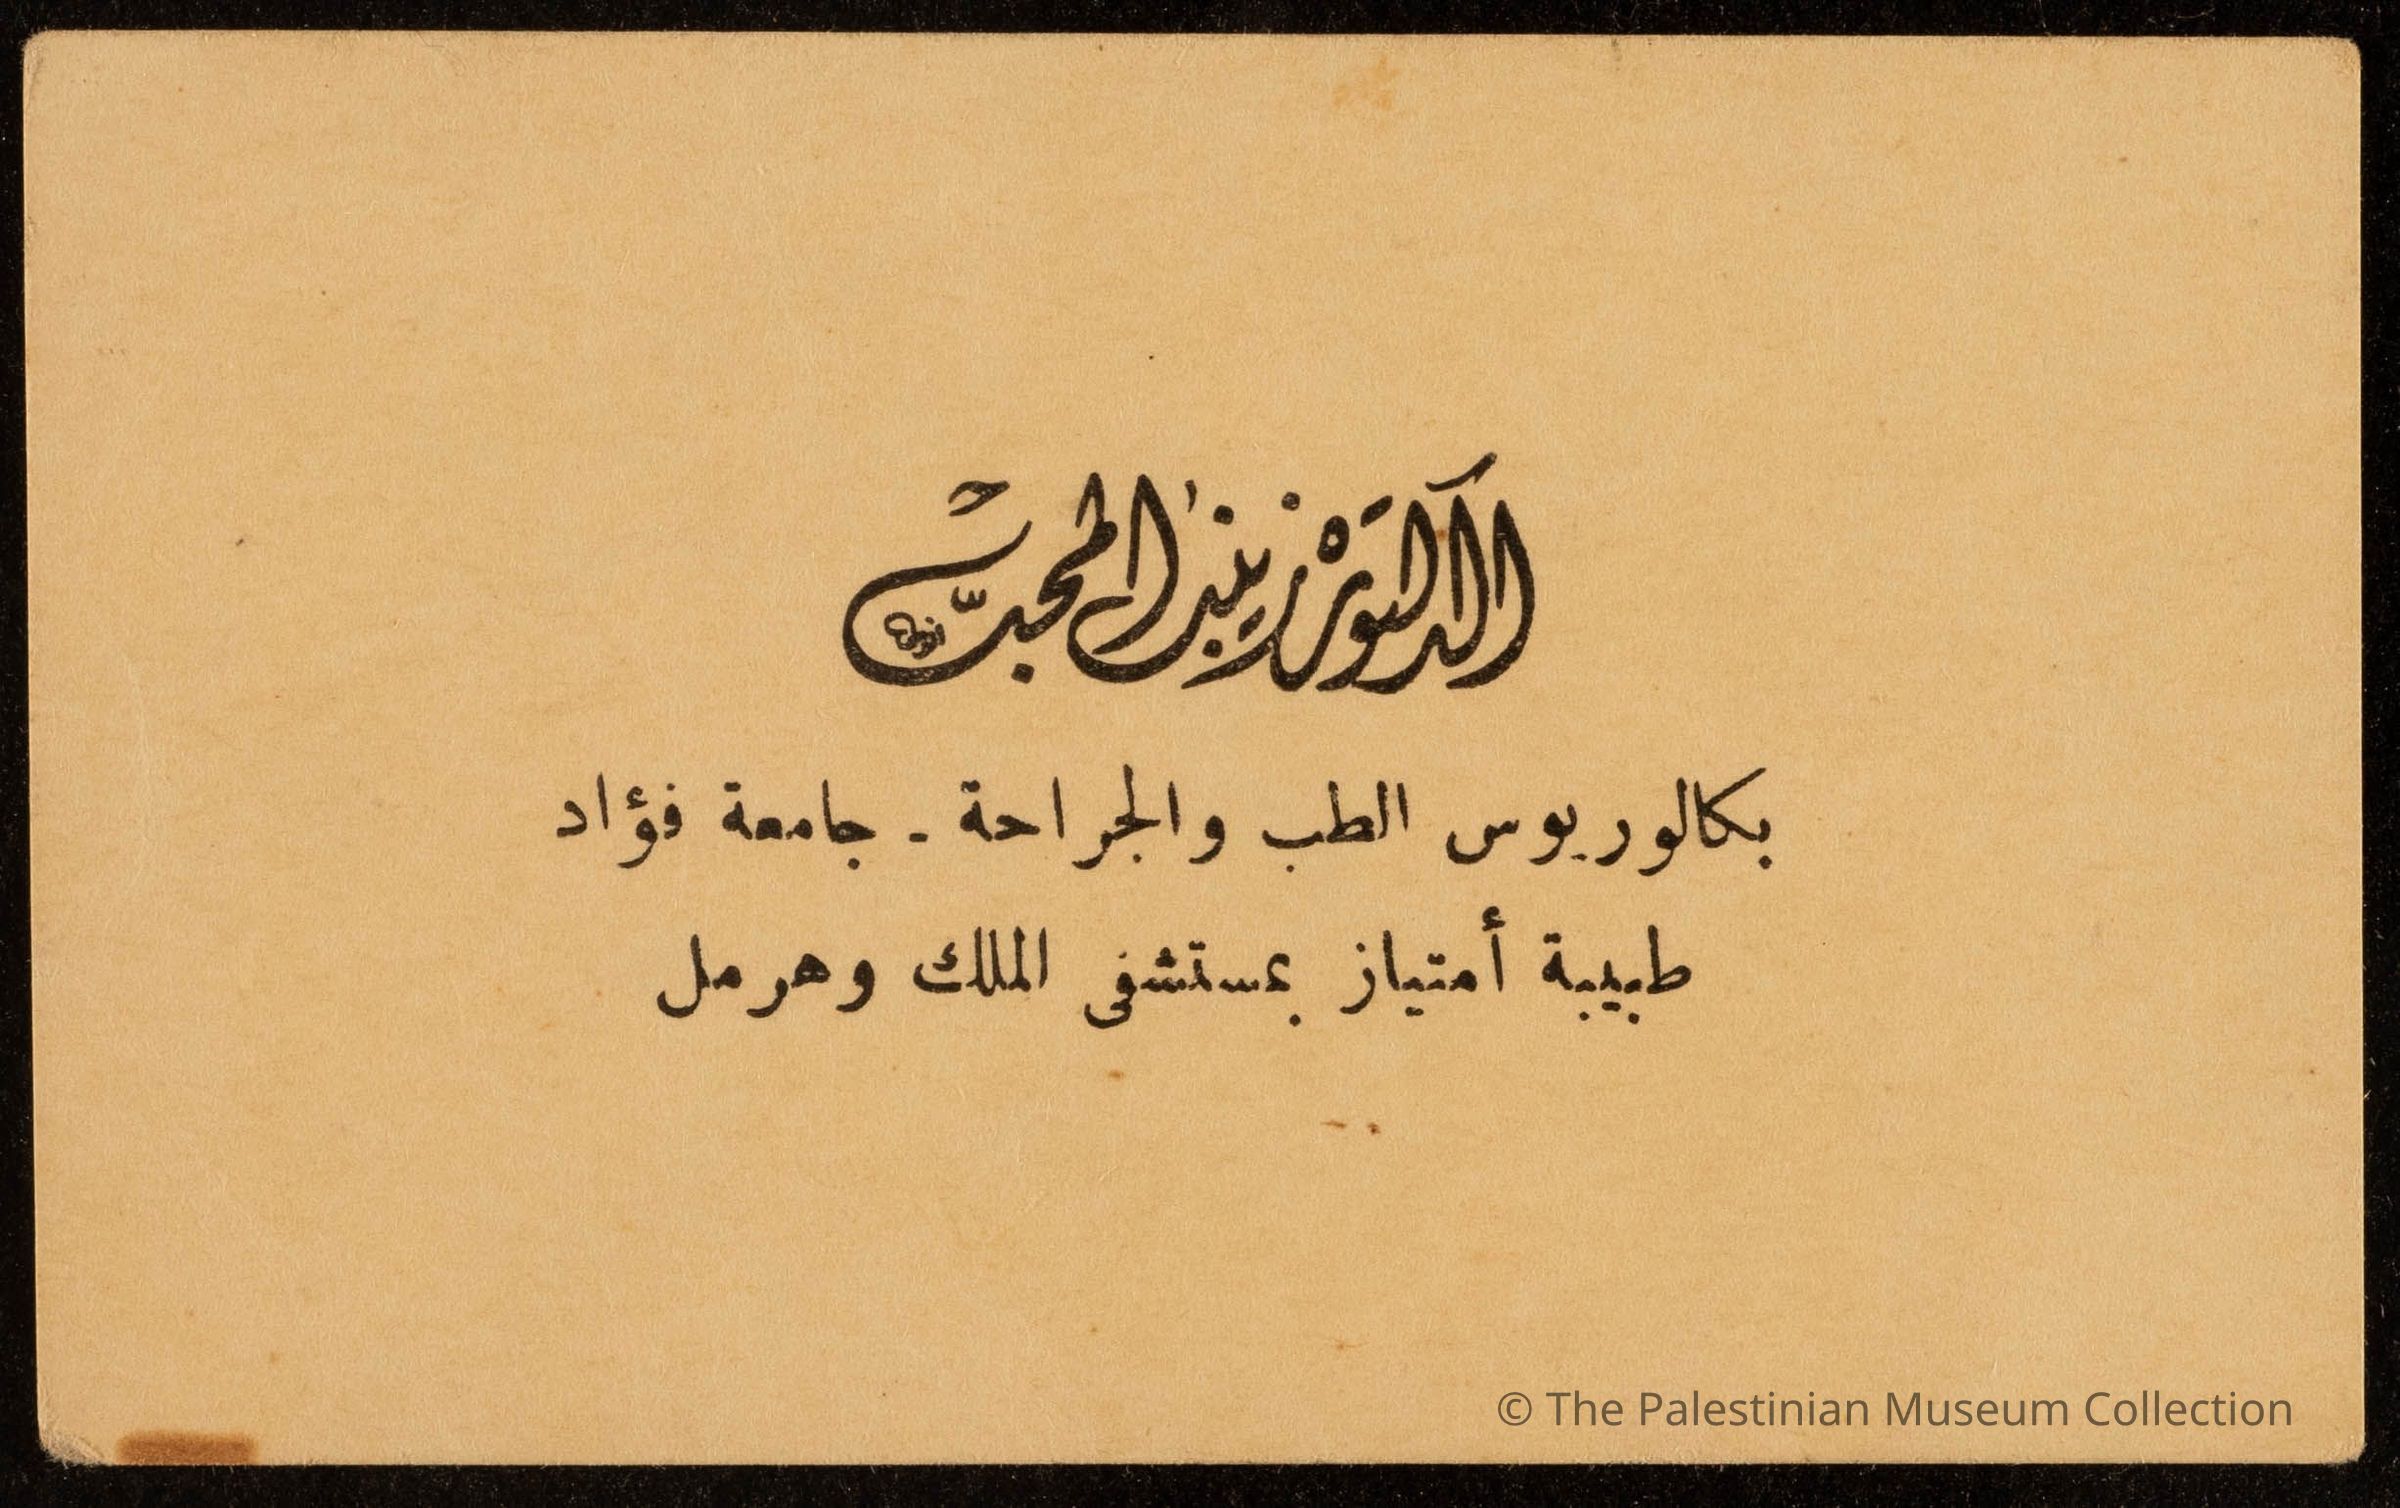 الدكتورة زينب المحبّ
بكالوريوس الطب والجراحة - جامعة فؤاد
طبيبة أمتياز بمستشفى الملك وهرمل
© The Palestinian Museum Collection